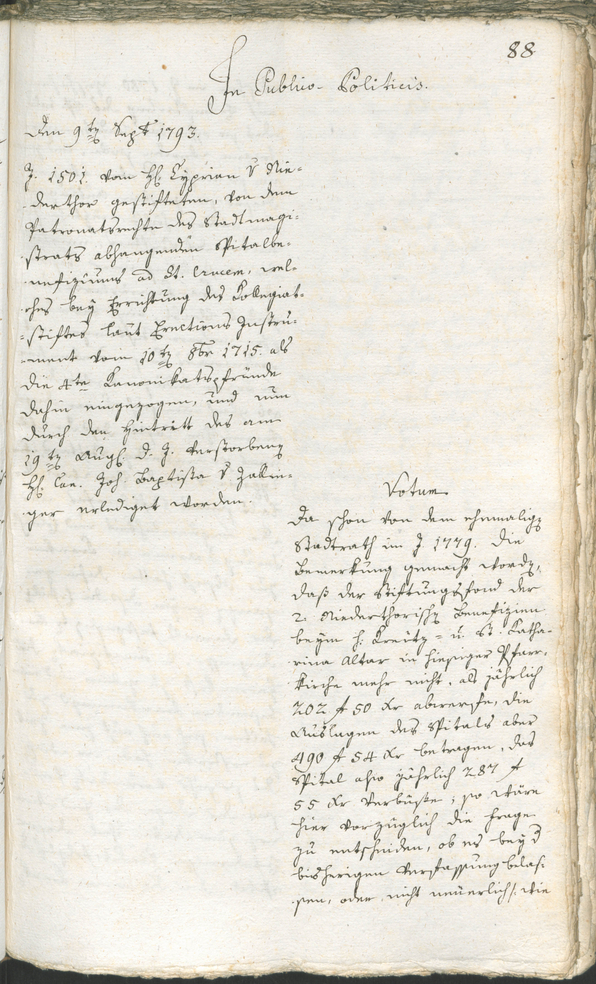 88
In Publico-Politicis.
den 9ten Sept 1793.
Z. 1501. vom H. Cyprian v Nie-
derthor gestifteten, von dem
Patronatsrechte des Stadtmagi-
strats abhangenden Spitalbe-
nefiziums ad St. Crucem, wel-
ches bey Errichtung des Kollegiat-
stiftes laut Erections Instru-
ment vom 10ten 8br 1715. als
die 4te Kanonikatspfründe
dahin eingezogen, und nun
durch den Hintritt des am
19ten Aug. d. J. verstorbenen
H. Can. Joh. Baptista v
ger erlediget worden.
Votum
Da schon von dem ehemaligen
Stadtrath im J. 1779. die
Bemerkung gemacht worden,
daß der Stiftungsfond der
2 Niederthorischen Benefizien
beym h. Kreitz- u. St. Katha-
rina Altar in hiesiger Pfarr-
kirche mehr nicht, als jährlich
202 f 50 kr abwerfe, die
Auslagen des Spitals aber
490 f 54 kr betragen, das
Spital also jährlich 287 f
55 kr verbüße, so wäre
hier vorzüglich die Frage
zu entscheiden, ob es bey d
bisherigen Verfassung belas-
sen, oder nicht neuerlich, die